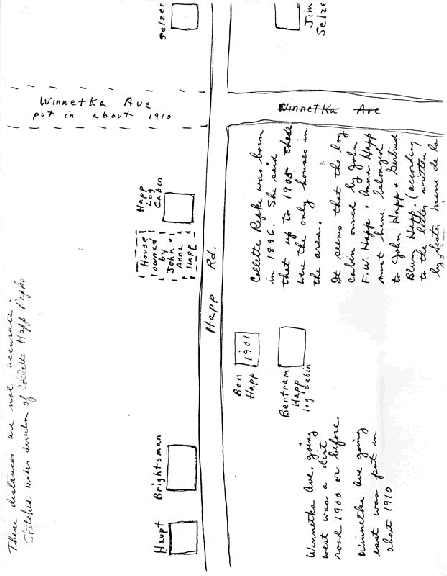 These distances are not accurate.
Sketched under direction of Collette Happ
Selzer
Jim
Selzer
Winnetka Ave
put in about 1910
Winnetka Ave
Happ
Log
Cabin
House
owned
by
John &
Anna
Happ
Happ Rd.
Collette was born
in 1896. She said
that up to 1905 these
were the only houses in
the area.
It seems that the log
cabin owned by John
F.W. Happ & Anna Happ
must have belonged
to John Happ & Gertrud
Happ (according
to the letter written
by
Ben
Happ
1901
Bertram
Happ
log cabin
Brightsman
Haupt
Winnetka Ave. going
west was a dirt
road 1900 or before.
Winnetka Ave going
east was put in
abot 1910